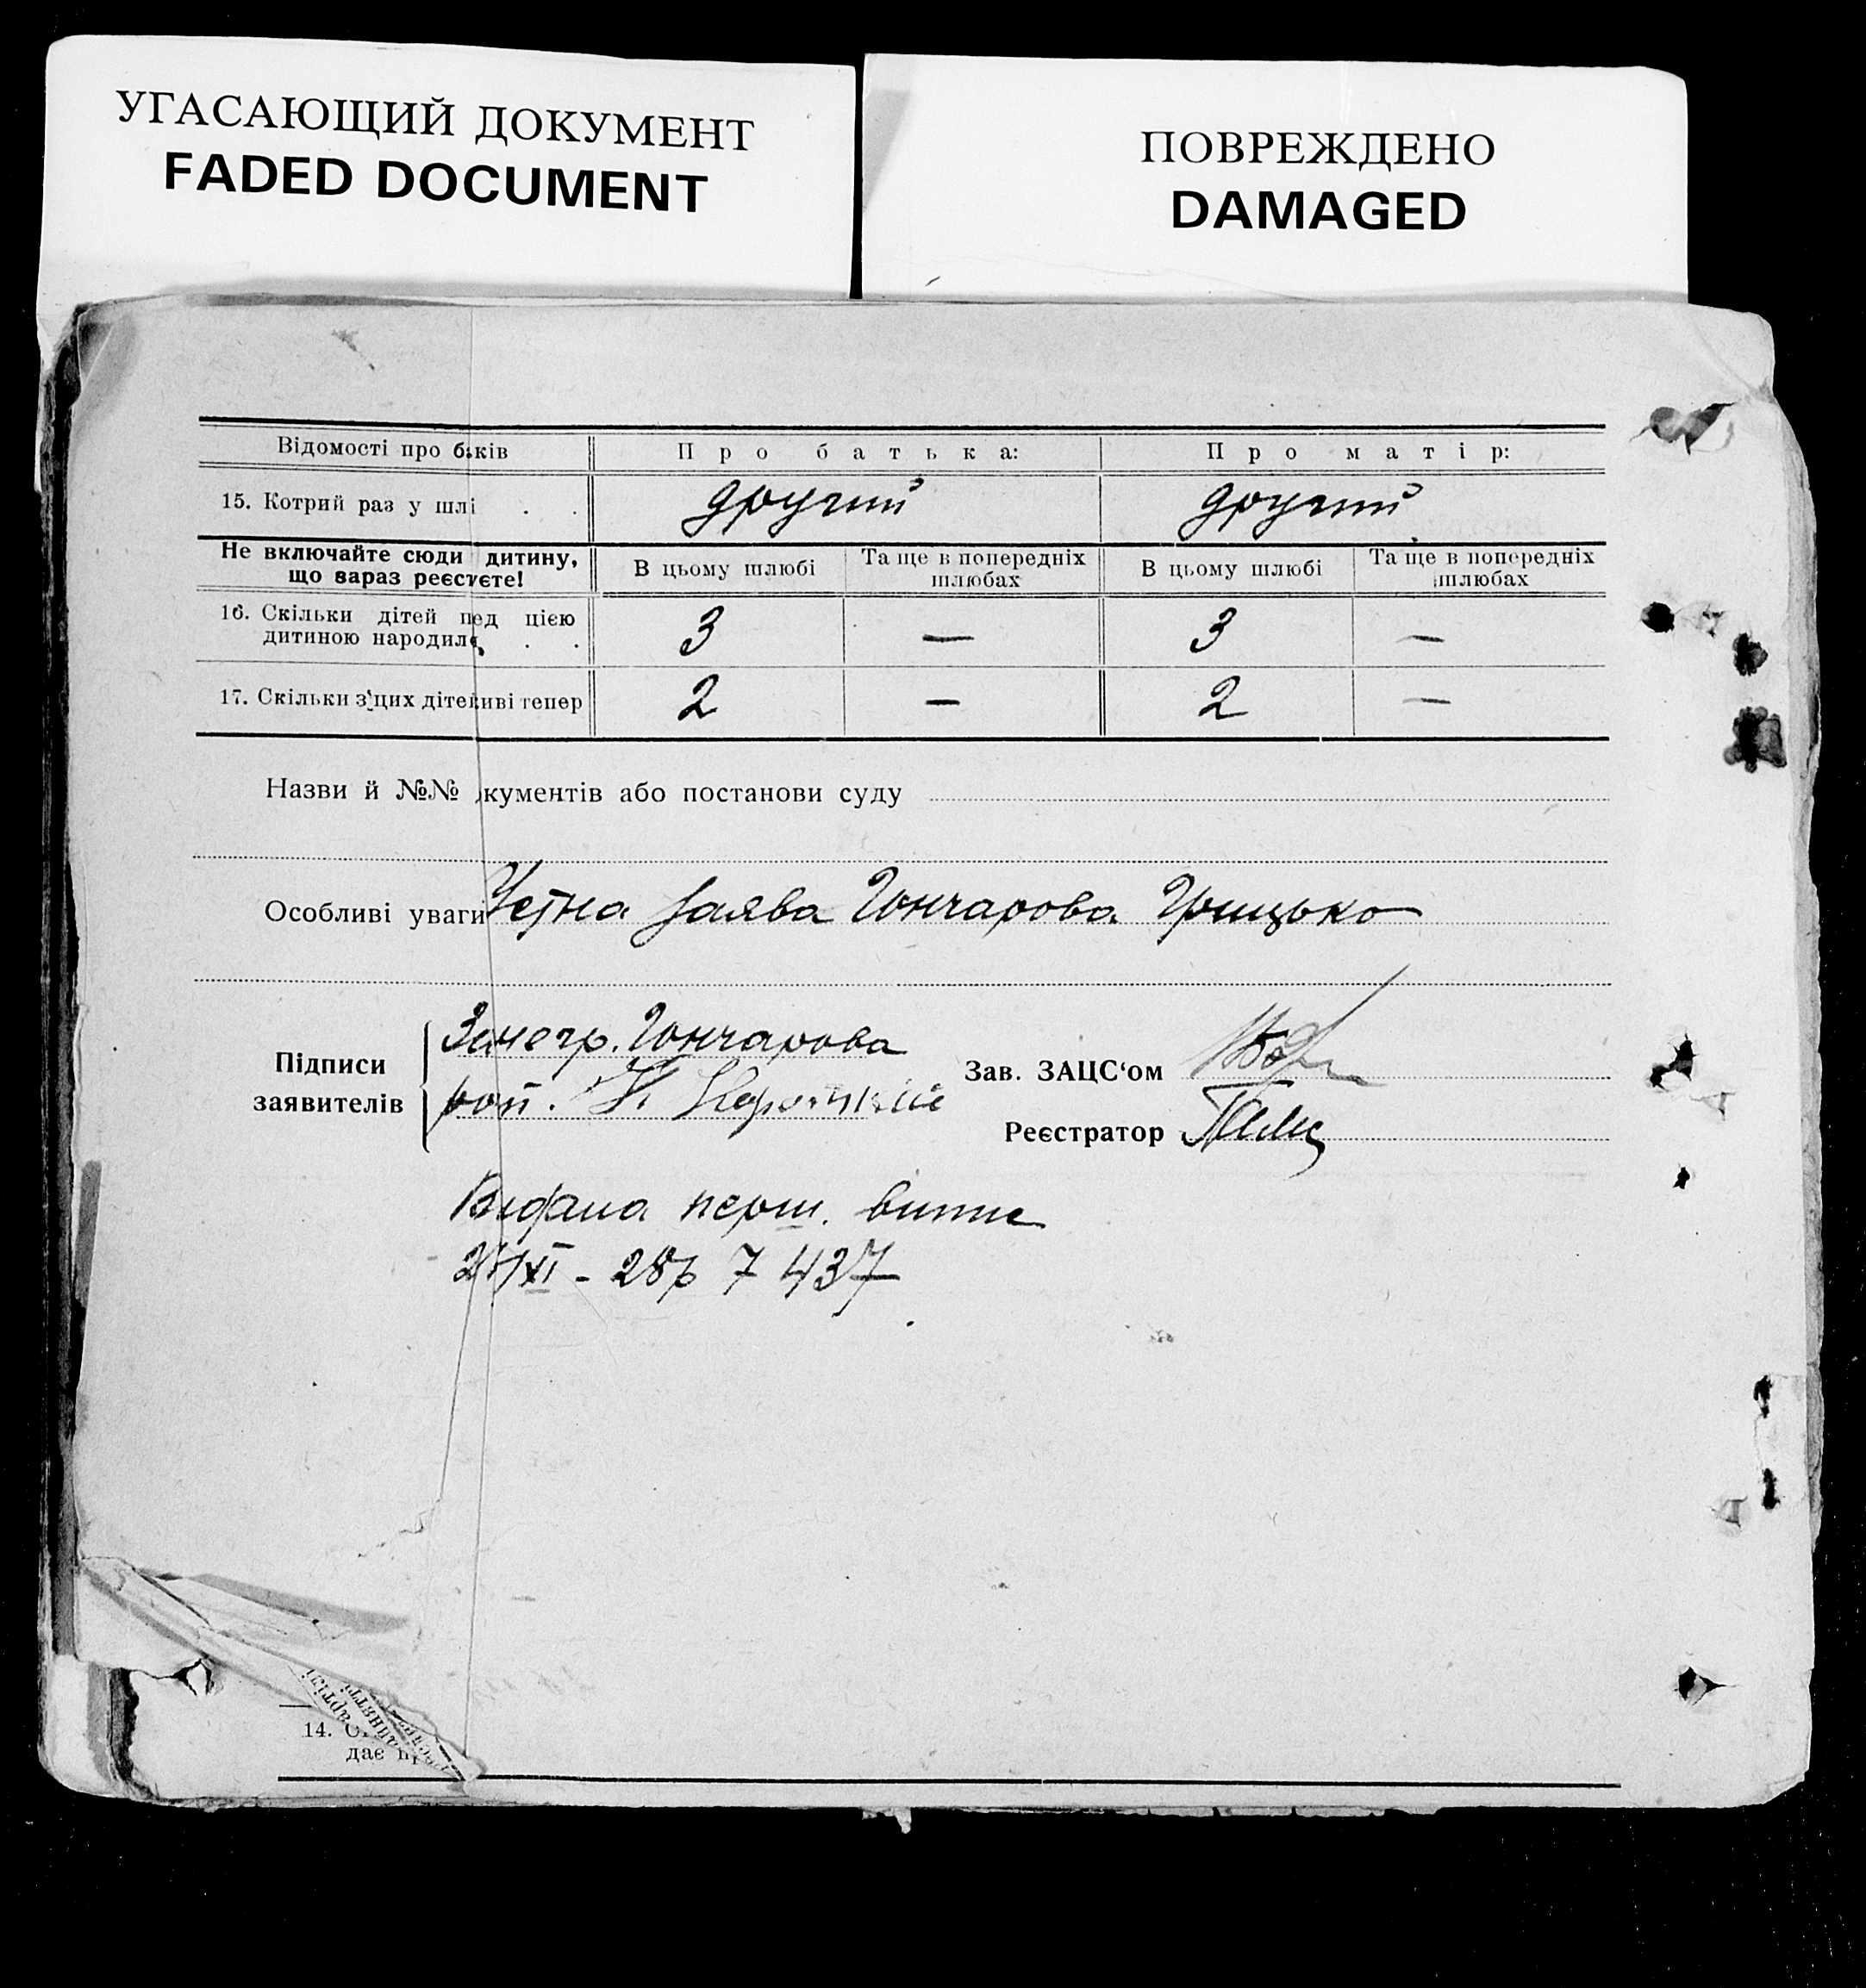 УГАСАЮЩИЙ ДОКУМЕНТ
FADED DOCUMENT
ПОВРЕЖДЕНО
DAMAGED
Відомості про б ків Про батька: Про матір:
15. Котрий раз у шлі . . другий другий
Не включайте сюди дитину, що вараз реєст єте! В цьому шлюбі Та ще в попередніх шлюбах В цьому шлюбі Та ще в попередніх шлюбах
16. Скільки дітей п ед цією
дитиною народил . . 3 — 3 —
17. Скільки з цих діте иві тепер 2 — 2 —
Назви й №№ кументів або постанови суду
Особливі уваги Устна заява Гончарова Грицько
Підписи заявителів
Занегр. Гончарова
Зав. ЗАЦС‘ом
Реєстратор
Видана перш. випис
XI - 28р 7 437
14.
дає